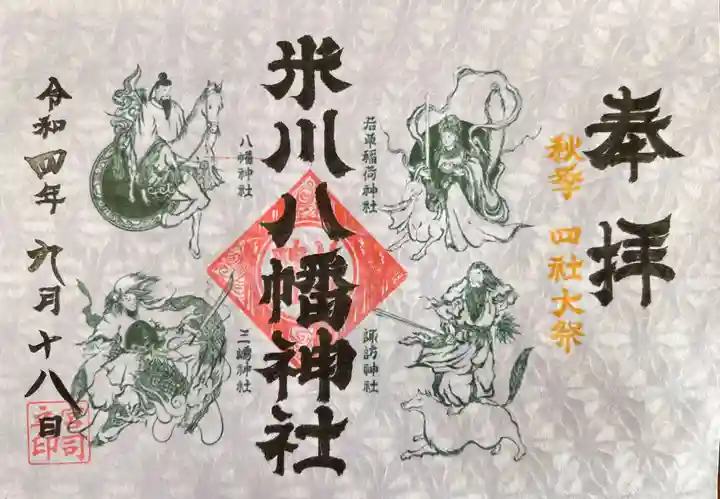 奉拝
秋季 四社大祭
若草稲荷神社
諏訪神社
米川八幡神社
八幡神社
三嶋神社
令和四年九月十八日
宮司之印